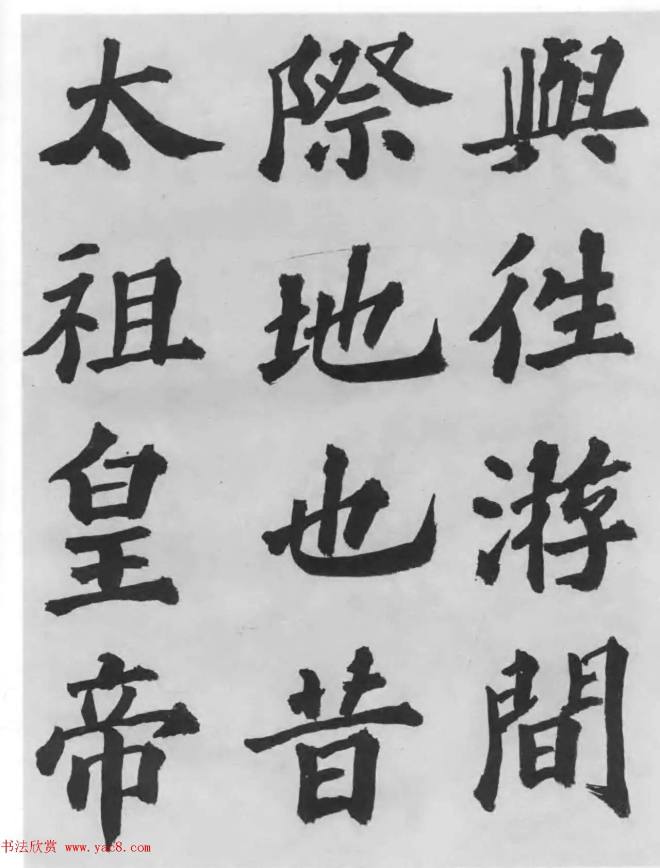 與徃游間
際地也昔
太祖皇帝
书法欣赏 www.yac8.com